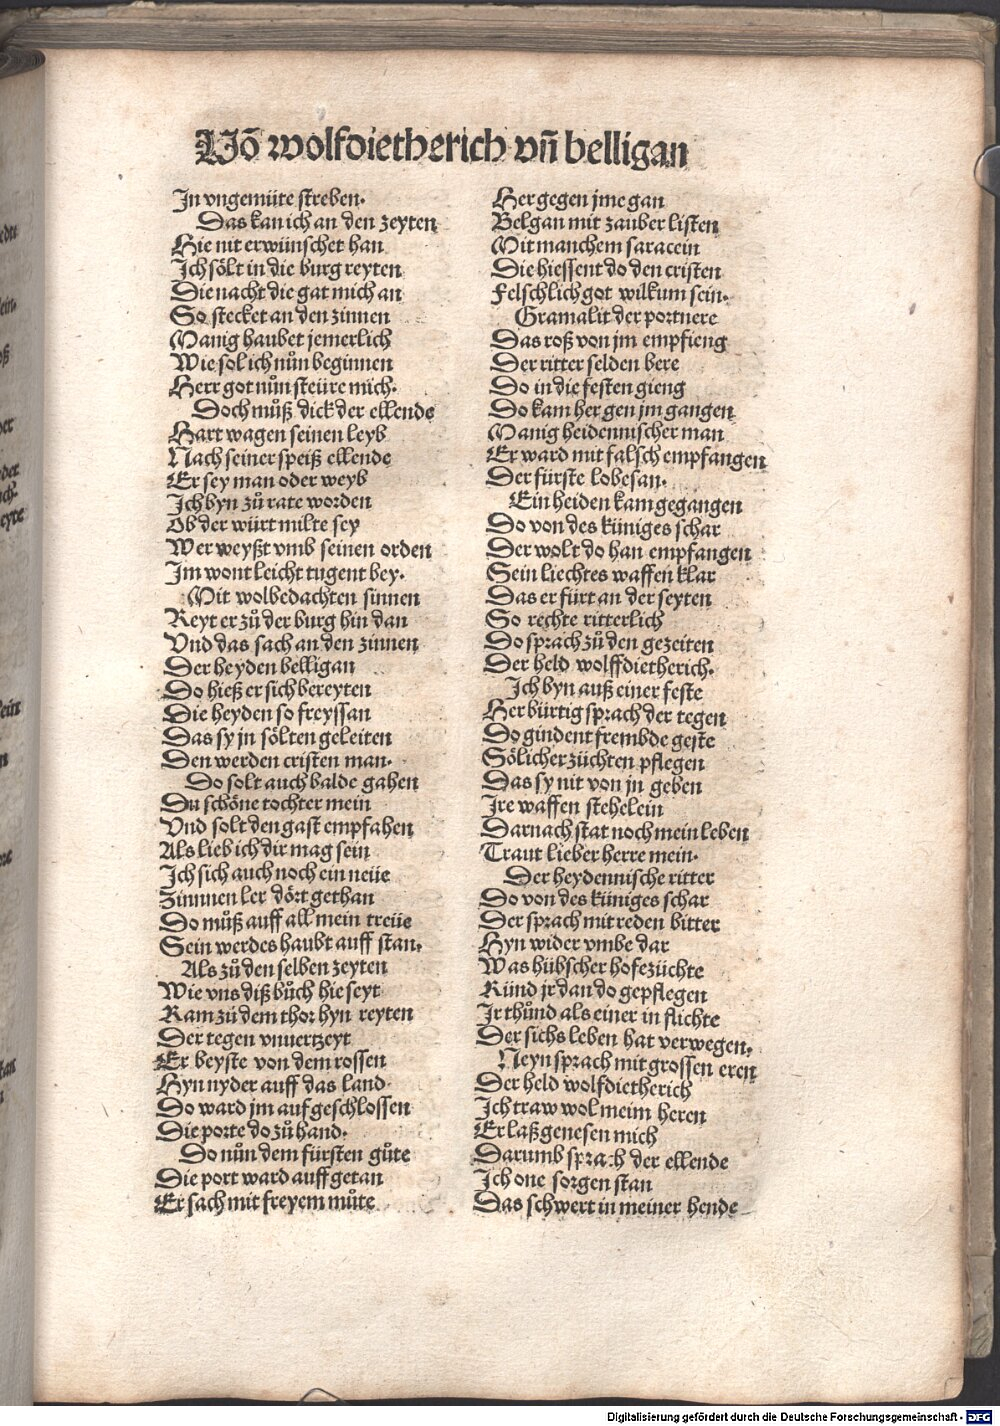 Uõ wolfdietherich vñ belligan
In vngemüte streben.
Das kan ich an den zeyten
Hie nit erwünschet han
Ich sölt in die burg reyten
Die nacht die gat mich an
So stecket an den zinnen
Manig haubet jemerlich
Wie sol ich nůn beginnen
Herr got nůn steüre mich.
Doch můß dick der ellende
Hart wagen seinen leyb
Nach seiner speiß ellende
Er sey man oder weyb
Ich byn zů rate worden
Ob der würt milte sey
Wer weyßt vmb seinen orden
Im wont leicht tugent bey.
Mit wolbedachten sinnen
Reyt er zů der burg hin dan
Vnd das sach an den zinnen
Der heyden belligan
Do hieß er sich bereyten
Die heyden so freyssan
Das sy jn sölten geleiten
Den werden cristen man.
Do solt auch balde gahen
Du schöne tochter mein
Vnd solt den gast empfahen
Als lieb ich dir mag sein
Ich sich auch noch ein neüe
Zinnnen ler dört gethan
Do můß auff all mein treüe
Sein werdes haubt auff stan.
Als zů den selben zeyten
Wie vns diß bůch hie seyt
Kam zů dem thor hyn reyten
Der tegen vnuertzeyt
Er beyste von dem rossen
Hyn nyder auff das land
Do ward jm aufgeschlossen
Die porte do zů hand.
Do nůn dem fürsten gůte
Die port ward auff getan
Er sach mit freyem můte
Her gegen jme gan
Belgan mit zauber listen
Mit manchem saracein
Die hiessent do den cristen
Felschlich got wilkum sein.
Gramalit der portnere
Das roß von jm empfieng
Der ritter selden bere
Do in die festen gieng
Do kam her gen jm gangen
Manig heidennischer man
Er ward mit falsch empfangen
Der fürste lobesan.
Ein heiden kam gegangen
Do von des küniges schar
Der wolt do han empfangen
Sein liechtes waffen klar
Das er fürt an der seyten
So rechte ritterlich
Do sprach zů den gezeiten
Der held wolffdietherich.
Ich byn auß einer feste
Her bürtig sprach der tegen
Do gindent frembde geste
Sölicher züchten pflegen
Das sy nit von jn geben
Ire waffen stehelein
Darnach stat noch mein leben
Traut lieber herre mein.
Der heydennische ritter
Do von des küniges schar
Der sprach mit reden bitter
Hyn wider vmbe dar
Was hübscher hofezüchte
Künd jr dan do gepflegen
Ir thůnd als einer in flichte
Der sichs leben hat verwegen.
Neyn sprach mit grossen eren
Der held wolfdietherich
Ich traw wol meim heren
Er laß genesen mich
Darumb sprach der ellende
Ich one sorgen stan
Das schwert in meiner hende
Digitalisierung gefördert durch die Deutsche Forschungsgemeinschaft - DFG